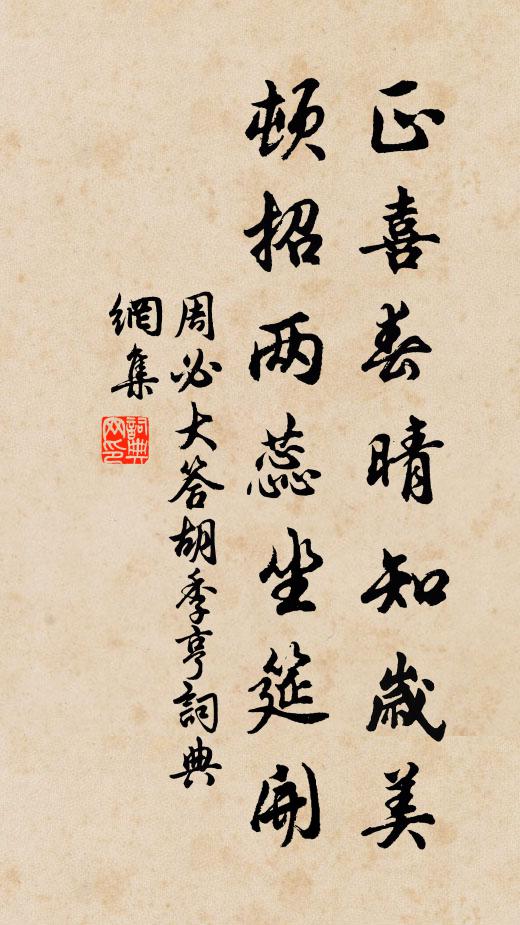 正喜春晴知歲美
頓招两蕊坐筵開
周必大答胡季亨詞典
網集
詞典
网印